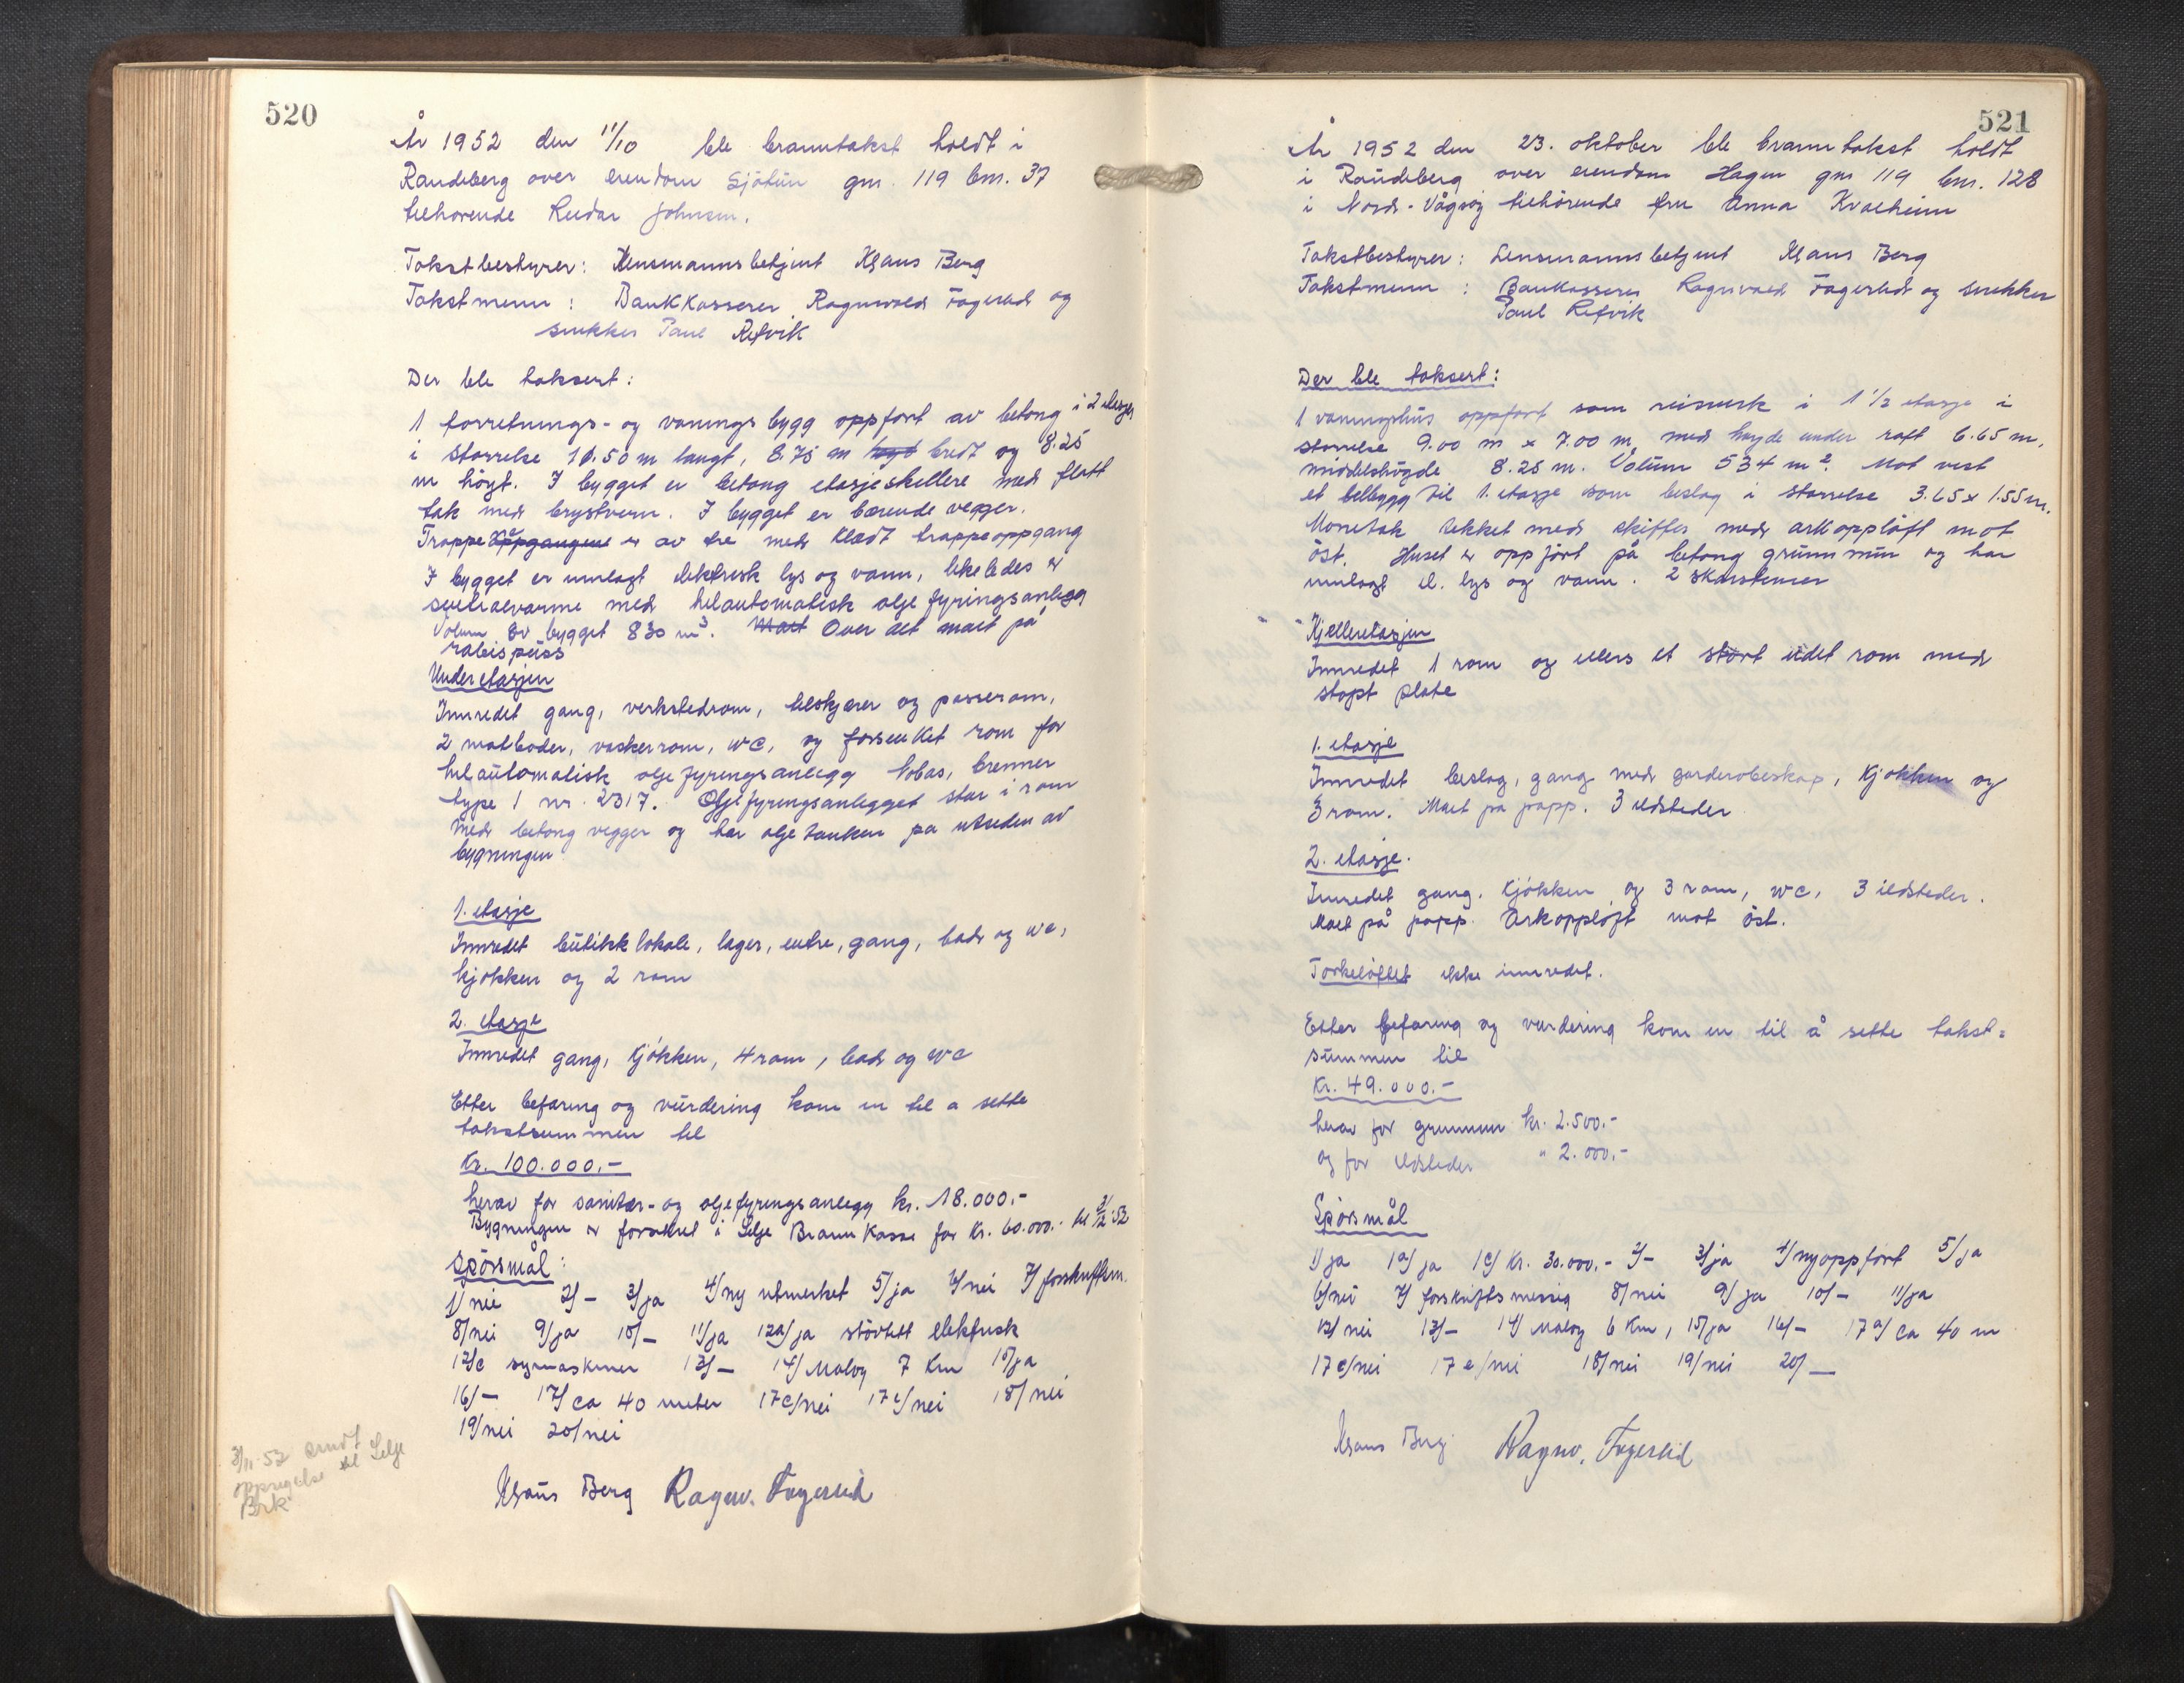 520
År 1952 den 11/10 ble branntakst holdt i
Raudeberg over eiendom Sjøtun gnr. 119 bnr. 37
tilhørende Reidar Johnsen.
Takstbestyrer: Lensmannsbetjent Klaus Berg
Takstmenn: Bankkasserer Ragnvald Fagerlid og
snekker Paul Refvik
Der ble taksert:
1 forretnings- og vånings bygg oppført av betong i 2 etasjer
i størrelse 10.50 m langt, 8.75 m høgt bredt og 8.25
m høgt. I bygget er betong etasjeskillere med flatt
tak med brystvern. I bygget er bærende vegger.
Trappe oppgangene er av tre med kledt trappeoppgang
I bygget er innlagt elektrisk lys og vann, likeledes er
sentralvarme med helautomatisk olje fyringsanlegg
Volum av bygget 830 m³. Malt Over alt malt på
rabispuss
Underetasjen
Innredet gang, verkstedrom, tilskjærer og presserom,
2 matboder, vaskerrom, WC, og forsenket rom for
helautomatisk oljefyringsanlegg Nobas, brenner
type 1 nr. 2317. Oljefyringsanlegget står i rom
med betong vegger og har olje tanken på utsiden av
bygningen
1. etasje
Innredet butikklokale, lager, entre, gang, bad og WC,
kjøkken og 2 rom
2. etasje
Innredet gang, kjøkken, 4 rom, bad og WC
Etter befaring og vurdering kom en til å sette
takstsummen til
Kr. 100.000.-
herav for sanitær- og oljefyringsanlegg kr. 18.000.-
Bygningen er forsikret i Selje Brann Kasse for kr. 60.000.- til 3/12-52
Spørsmål:
1/ nei 2/ - 3/ ja 4/ ny utmerket 5/ ja 6/ nei 7/ forskriftsm.
8/ nei 9/ ja 10/ - 11/ ja 12a/ ja støvtett elektrisk
12/c symaskiner 13/ - 14/ Måløy 7 km 15/ ja
16/ - 17/ ca 40 meter 17c/ nei 17e/ nei 18/ nei
19/ nei 20/ nei
Klaus Berg Ragnv. Fagerlid
3/11-52 sendt
oppsigelse til Selje
Brk
521
År 1952 den 23. oktober ble branntakst holdt
i Raudeberg over eiendom Hagen gnr 119 bnr. 128
i Nord-Vågsøy tilhørende fru Anna Kvalheim
Takstbestyrer: Lensmannsbetjent Klaus Berg
Takstmenn: Bankkasserer Ragnvald Fagerlid og snekker
Paul Refvik
Der ble taksert:
1 våningshus oppført som reisverk i 1 1/2 etasje i
størrelse 9.00 m x 7.00 m, med høyde under raft 6.65 m,
middelshøgde 8.25 m. Volum 534 m². Mot vest
et tilbygg til 1. etasje som beslag i størrelse 3.65 x 1.55 m.
Mønetak tekket med skiffer med arkoppløft mot
øst. Huset er oppført på betong grunnmur og har
innlagt el. lys og vann. 2 skorsteiner
Kjelleretasjen
Innredet 1 rom og ellers et stort udelt rom med
støpt plate
1. etasje
Innredet beslag, gang med garderobeskap, kjøkken og
3 rom. Malt på papp. 3 ildsteder
2. etasje.
Innredet gang. Kjøkken og 3 rom, WC, 3 ildsteder.
Malt på papp. Arkoppløft mot øst.
Tørkeloftet ikke innredet.
Etter befaring og vurdering kom en til å sette takst=
summen til
Kr. 49.000.-
herav for grunnmur kr. 2.500.-
og for ildsteder " 2.000.-
Spørsmål
1/ ja 1a/ ja 1c/ kr. 30.000.- 2/ - 3/ ja 4/ nyoppført 5/ ja
6/ nei 7/ forskriftsmessig 8/ nei 9/ ja 10/ - 11/ ja
12/ nei 13/ - 14/ Måløy 6 km, 15/ ja 16/ - 17a/ ca 40 m
17c/ nei 17e/ nei 18/ nei 19/ nei 20/ —
Klaus Berg Ragnv. Fagerlid